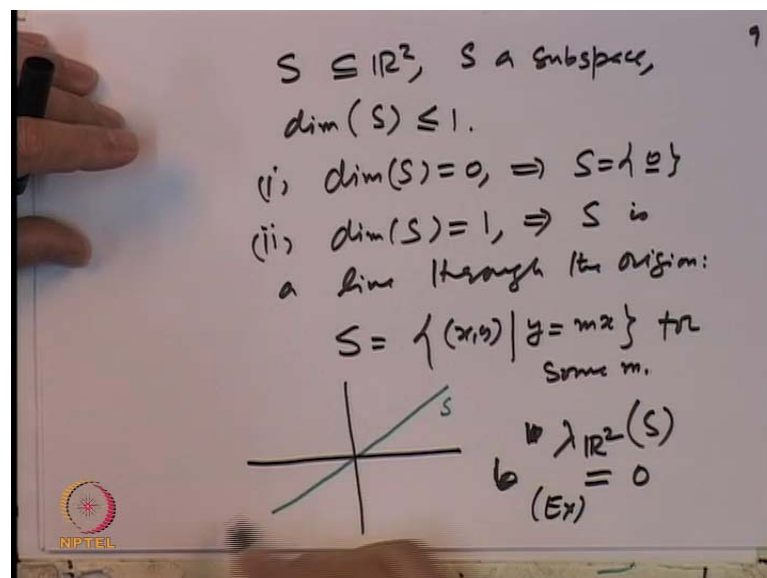 9
S ⊆ ℝ², S a subspace,
dim(S) ≤ 1.
(i) dim(S)=0, ⇒ S={0}
(ii) dim(S)=1, ⇒ S is
a line through the origin:
S = {(x,y) | y = mx} for
some m.
S
λ_ℝ²(S)
= 0
(Ex)
NPTEL